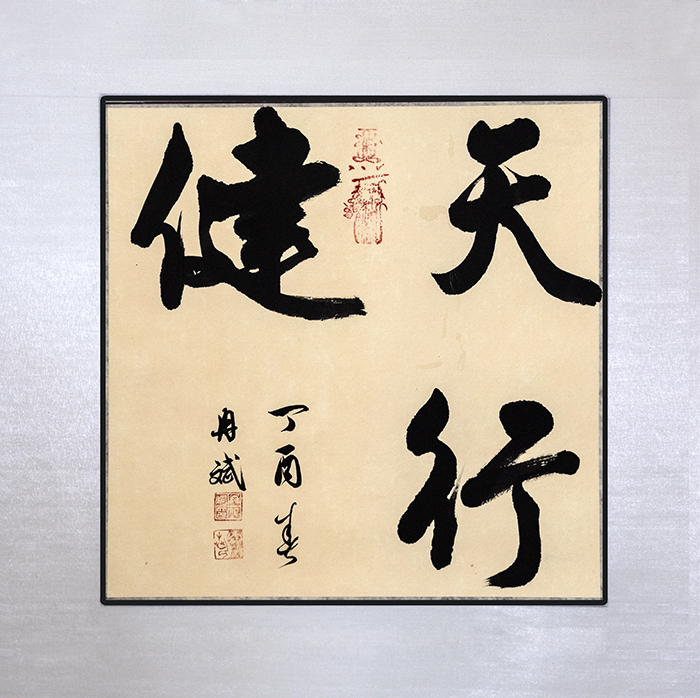 天行
健
丁酉春
斌